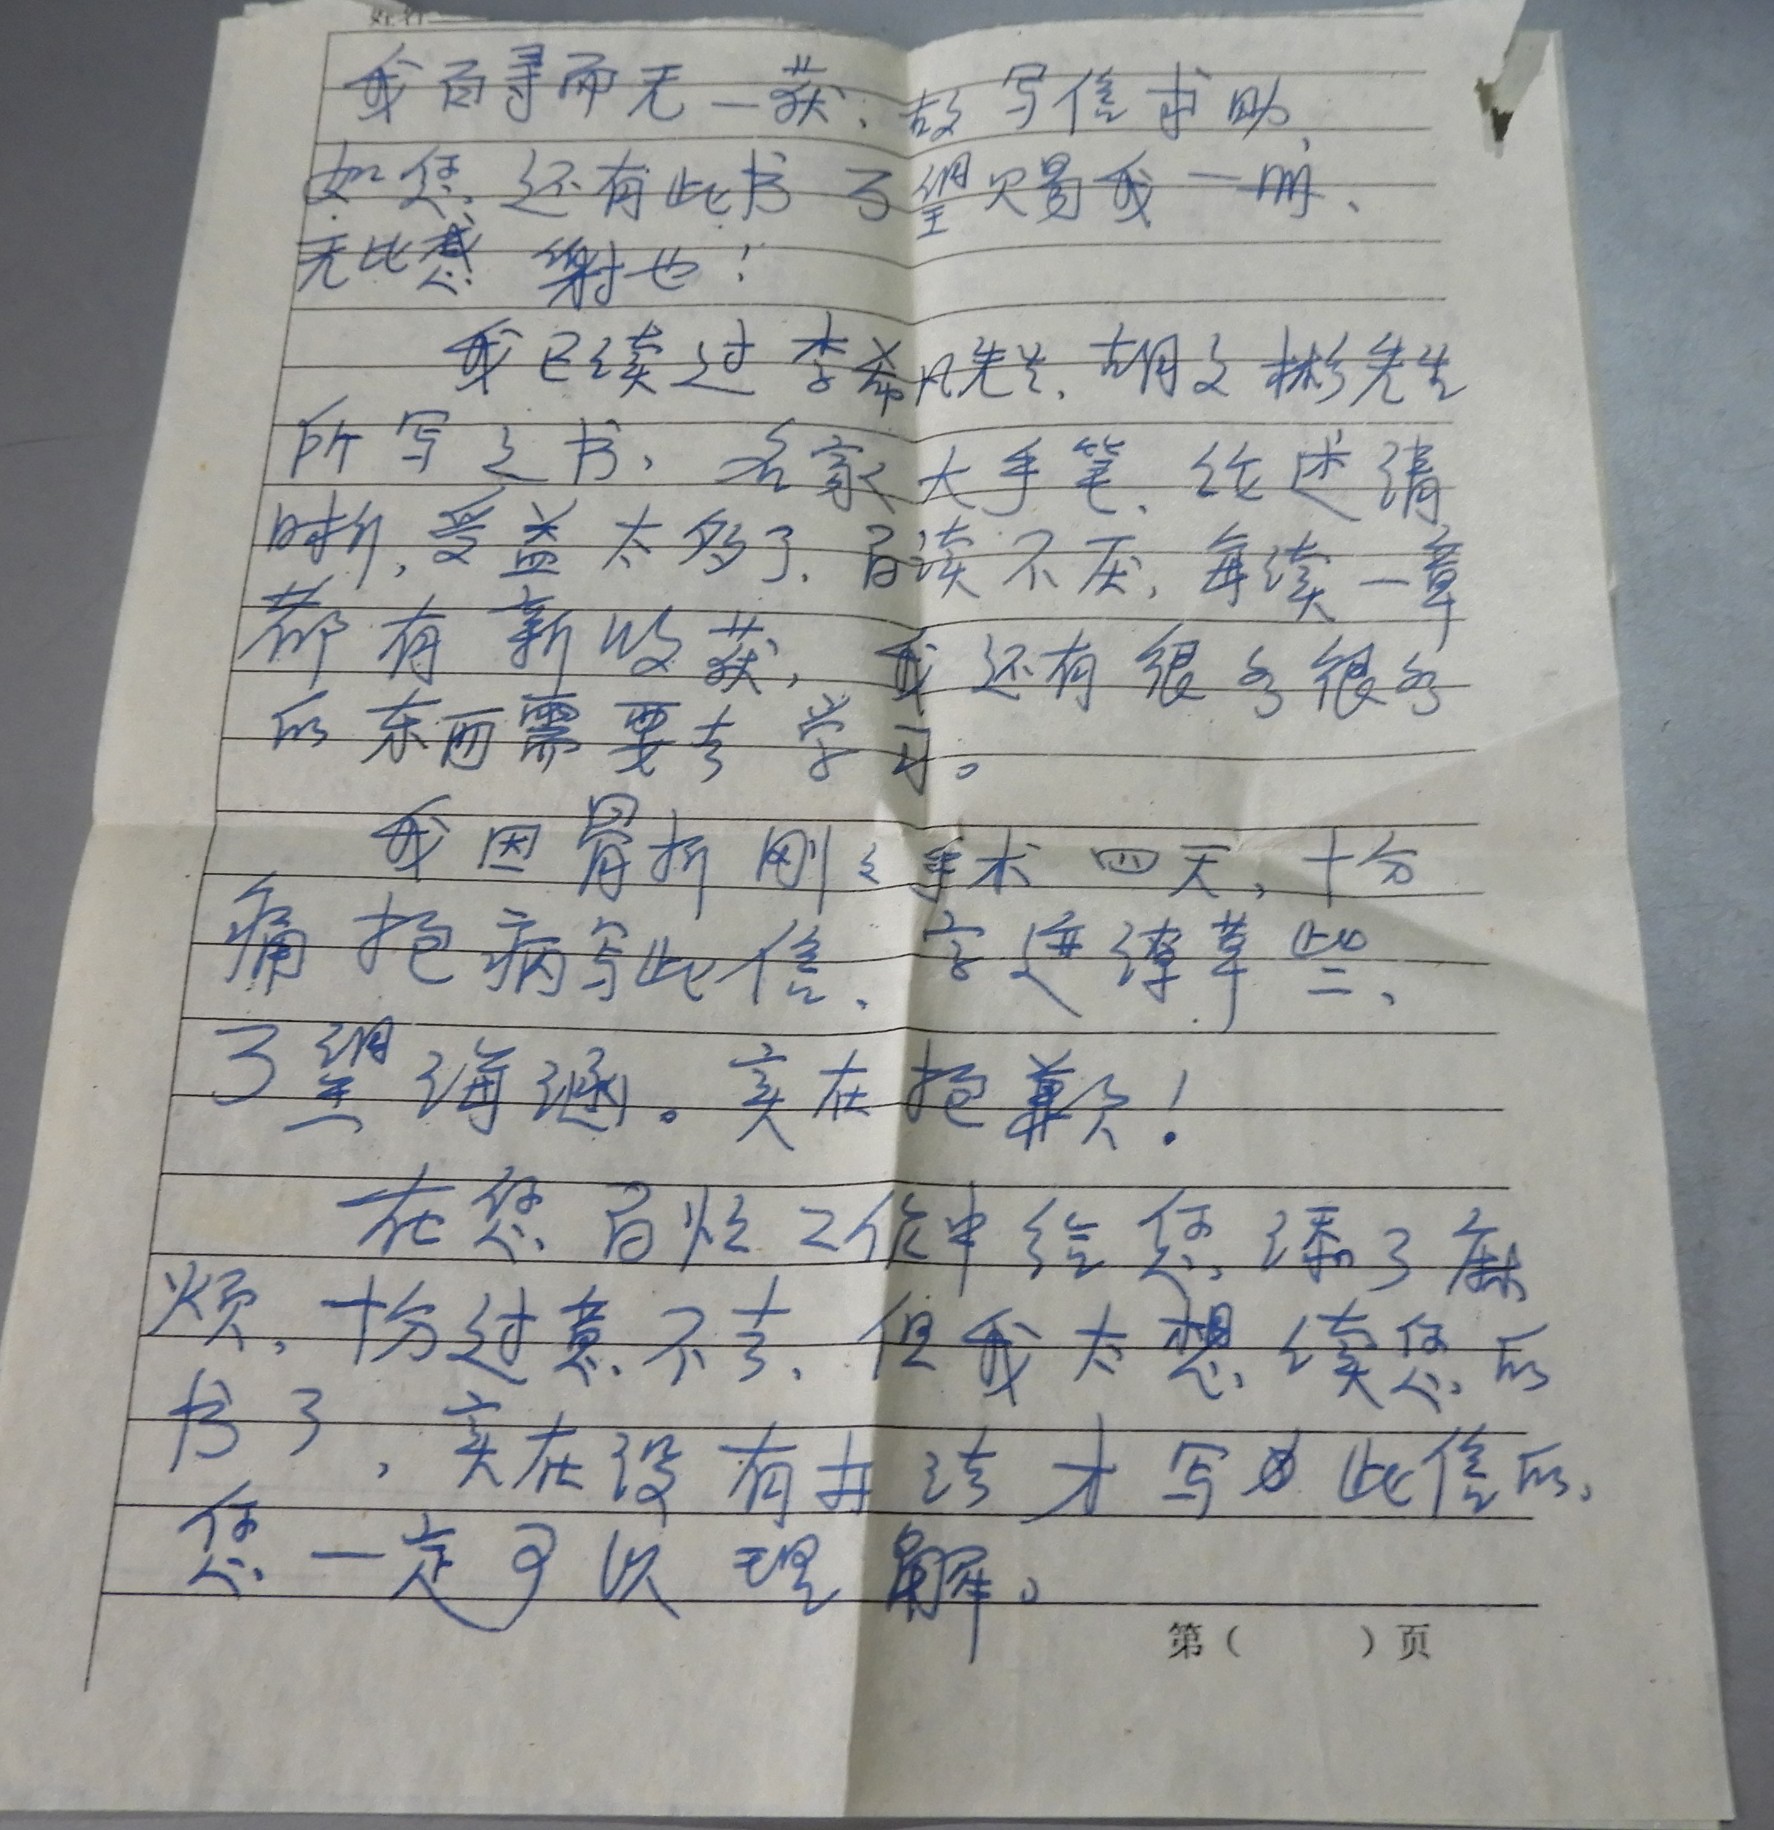 姓名
我百寻而无一获，故写信求助，
如您还有此书了望只赐我一册，
无比感谢也！
我已读过李希凡先生、胡文彬先生
所写之书，名家大手笔，论述清
晰，受益太多了，百读不厌，每读一章
都有新收获，我还有很多很多
的东西需要去学习。
我因胃折刚之手术四天，十分
痛抱病写此信，字迹潦草些，
了望海涵。实在抱歉！
在您百忙工作中给您添了麻
烦，十分过意不去，但我太想读您的
书了，实在没有办法才写此信的，
您一定可以理解。
第（ ）页